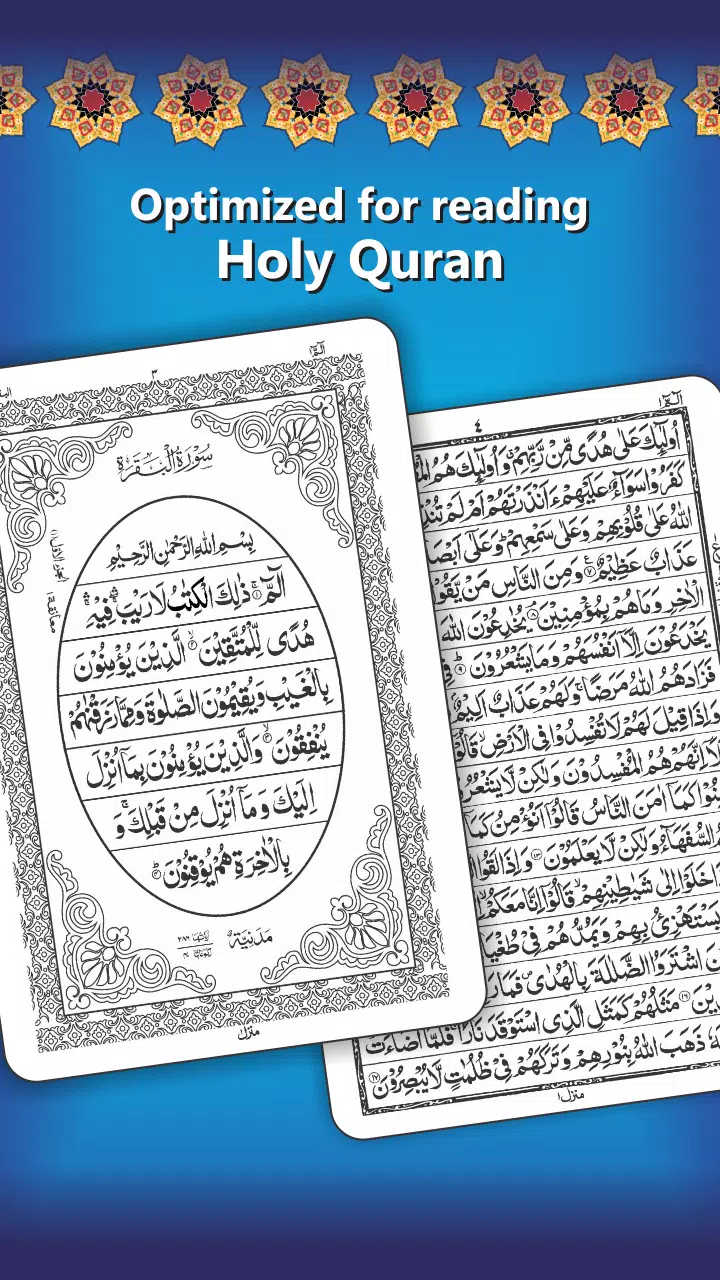 Optimized for reading
Holy Quran
الٓمّٓ
٣
سُوْرَةُ الْبَقَرَةِ
بِسْمِ اللّٰهِ الرَّحْمٰنِ الرَّحِیْمِ
الٓمّٓ ۚ﴿۱﴾ ذٰلِكَ الْكِتٰبُ لَا رَیْبَ ۛۖ فِیْهِ ۛۚ
هُدًی لِّلْمُتَّقِیْنَ ۙ﴿۲﴾ الَّذِیْنَ یُؤْمِنُوْنَ
بِالْغَیْبِ وَیُقِیْمُوْنَ الصَّلٰوةَ وَمِمَّا رَزَقْنٰهُمْ
یُنْفِقُوْنَ ۙ﴿۳﴾ وَالَّذِیْنَ یُؤْمِنُوْنَ بِمَاۤ اُنْزِلَ
اِلَیْكَ وَمَاۤ اُنْزِلَ مِنْ قَبْلِكَ ۚ وَ
بِالْاٰخِرَةِ هُمْ یُوْقِنُوْنَ ؕ﴿۴﴾
مَدَنِیَّةٌ
اٰیَاتُهَا ٢٨٦
رُكُوْعَاتُهَا ٤٠
منزل
الٓمّٓ
٤
اُولٰٓئِكَ عَلٰی هُدًی مِّنْ رَّبِّهِمْ ۗ وَاُولٰٓئِكَ هُمُ
كَفَرُوْا سَوَآءٌ عَلَیْهِمْ ءَاَنْذَرْتَهُمْ اَمْ لَمْ
اللّٰهُ عَلٰی قُلُوْبِهِمْ وَعَلٰی سَمْعِهِمْ ؕ وَعَلٰۤی
عَذَابٌ عَظِیْمٌ ﴿۷﴾ وَمِنَ النَّاسِ مَنْ
الْاٰخِرِ وَمَا هُمْ بِمُؤْمِنِیْنَ ۘ﴿۸﴾ یُخٰدِعُوْنَ اللّٰهَ
یَخْدَعُوْنَ اِلَّاۤ اَنْفُسَهُمْ وَمَا یَشْعُرُوْنَ ؕ﴿۹﴾ فِیْ
فَزَادَهُمُ اللّٰهُ مَرَضًا ۚ وَلَهُمْ عَذَابٌ اَلِیْمٌ
وَاِذَا قِیْلَ لَهُمْ لَا تُفْسِدُوْا فِی الْاَرْضِ ۙ قَالُوْۤا
اَلَاۤ اِنَّهُمْ هُمُ الْمُفْسِدُوْنَ وَلٰكِنْ لَّا یَشْعُرُوْنَ
كَمَاۤ اٰمَنَ النَّاسُ قَالُوْۤا اَنُؤْمِنُ كَمَاۤ
السُّفَهَآءُ وَلٰكِنْ لَّا یَعْلَمُوْنَ ﴿۱۳﴾ وَاِذَا لَقُوا
خَلَوْا اِلٰی شَیٰطِیْنِهِمْ ۙ قَالُوْۤا اِنَّا مَعَكُمْ
یَسْتَهْزِئُ بِهِمْ وَیَمُدُّهُمْ فِیْ
اشْتَرَوُا الضَّلٰلَةَ بِالْهُدٰی ۪ فَمَا
﴿۱۶﴾ مَثَلُهُمْ كَمَثَلِ الَّذِی اسْتَوْقَدَ نَارًا ۚ فَلَمَّاۤ اَضَآءَتْ
ذَهَبَ اللّٰهُ بِنُوْرِهِمْ وَتَرَكَهُمْ فِیْ ظُلُمٰتٍ لَّا یُبْصِرُوْنَ ﴿۱۷﴾
منزل ١